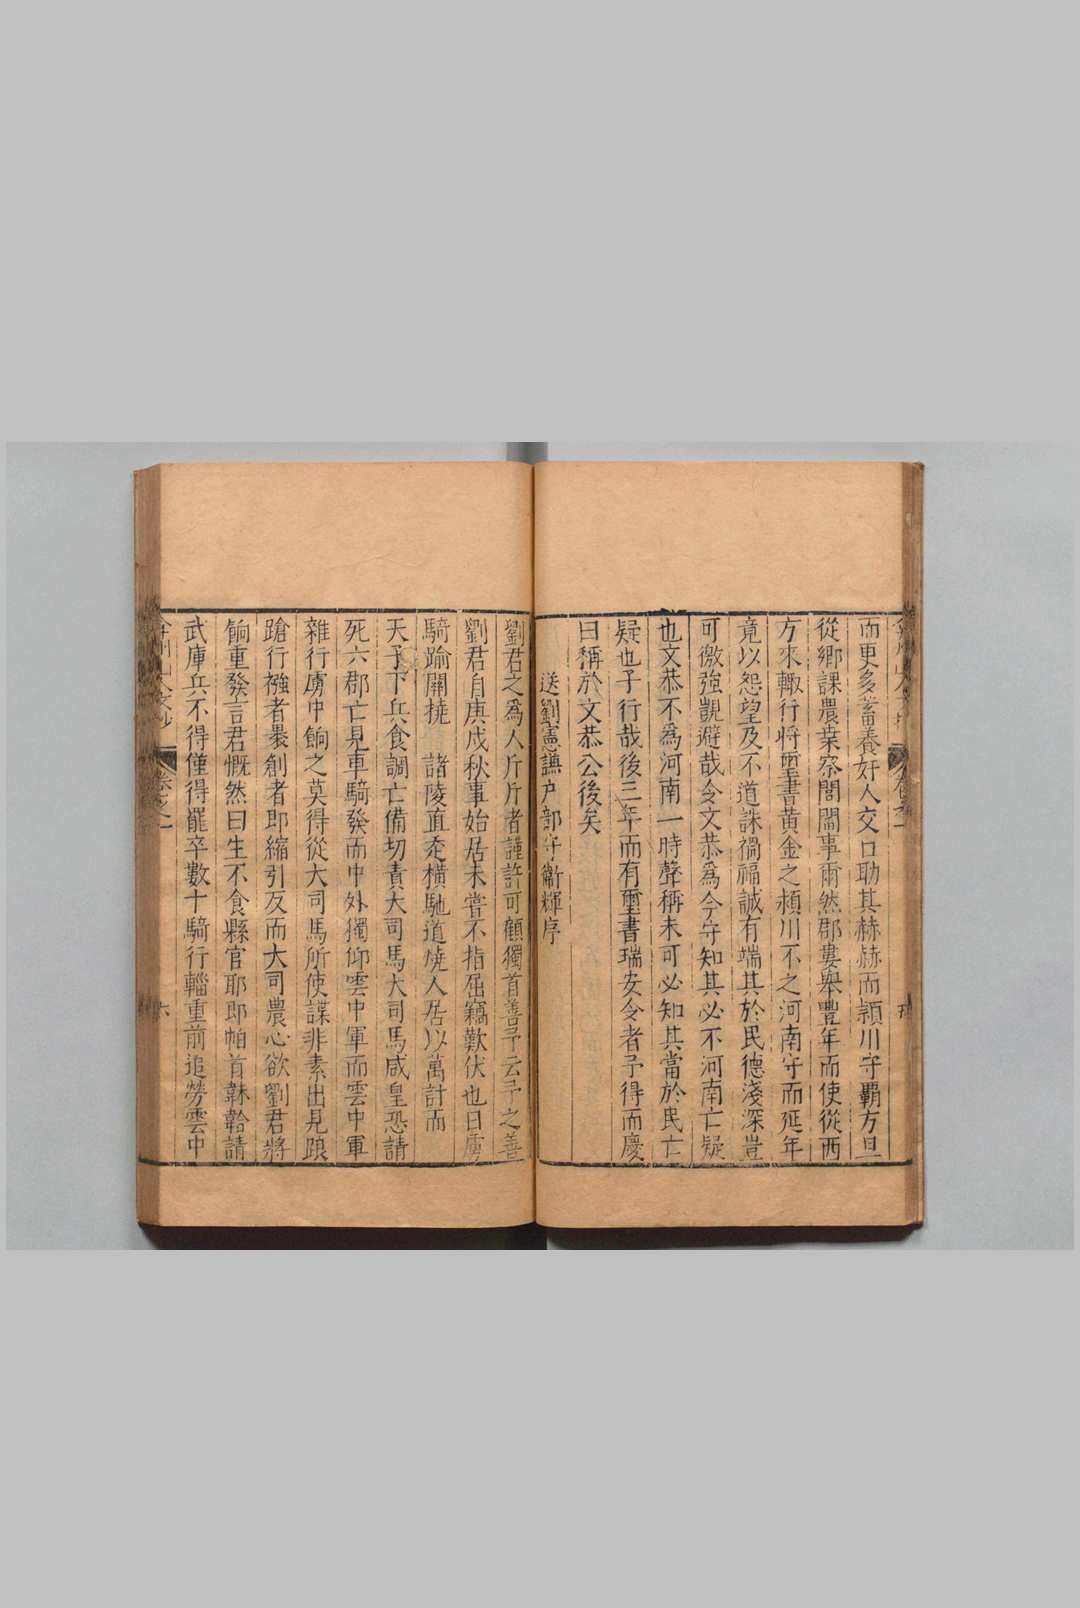 而更多蓄養奸人交口助其赫赫而潁川守霸方旦
從鄉課農桒察閭閻事爾然郡婁舉豐年而使從西
方來轍行將璽書黃金之潁川不之河南守而延年
竟以怨望及不道誅禍福誠有端其於民德淺深豈
可徼強覬避哉令文恭為今守知其必不河南亡疑
也文恭不為河南一時聲稱未可必知其當於民亡
疑也子行哉後三年而有璽書瑞安令者予得而慶
曰稱於文恭公後矣
送劉憲謙户部守衛輝序
劉君之為人斤斤者謹許可顧獨首善予云予之善
劉君自庚戌秋事始居未嘗不指屈竊歎伏也曰虜
騎踰關撓諸陵直走橫馳道燒人居以萬計而
天子下兵食調亡備切責大司馬大司馬咸皇恐請
死六郡亡見車騎發而中外獨仰雲中軍而雲中軍
雜行虜中餉之莫得從大司馬所使諜非素出見踉
蹌行襁者暴創者即縮引反而大司農心欲劉君將
餉重發言君慨然曰生不食縣官耶即帕首韎韐請
武庫兵不得僅得罷卒數十騎行輜重前追勞雲中
弇州山人文抄
卷之一
六